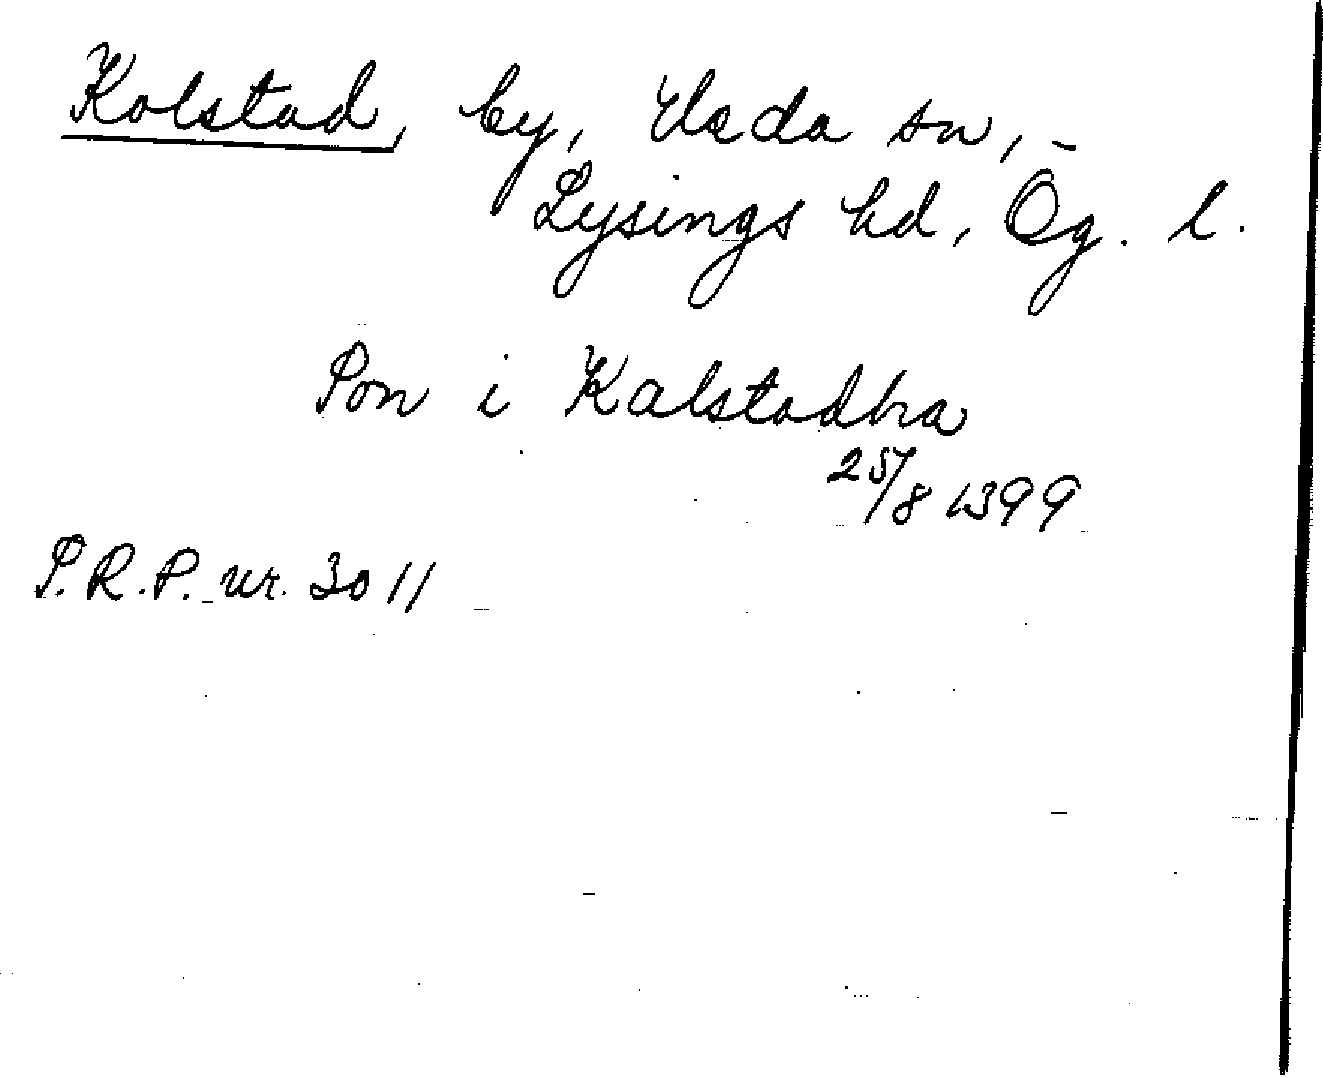 Kolstad, by, Heda sn, -
Lysings hd, Ög. l.
Pon i Kalstadha
25/8 1399
P.R.P. nr. 3011